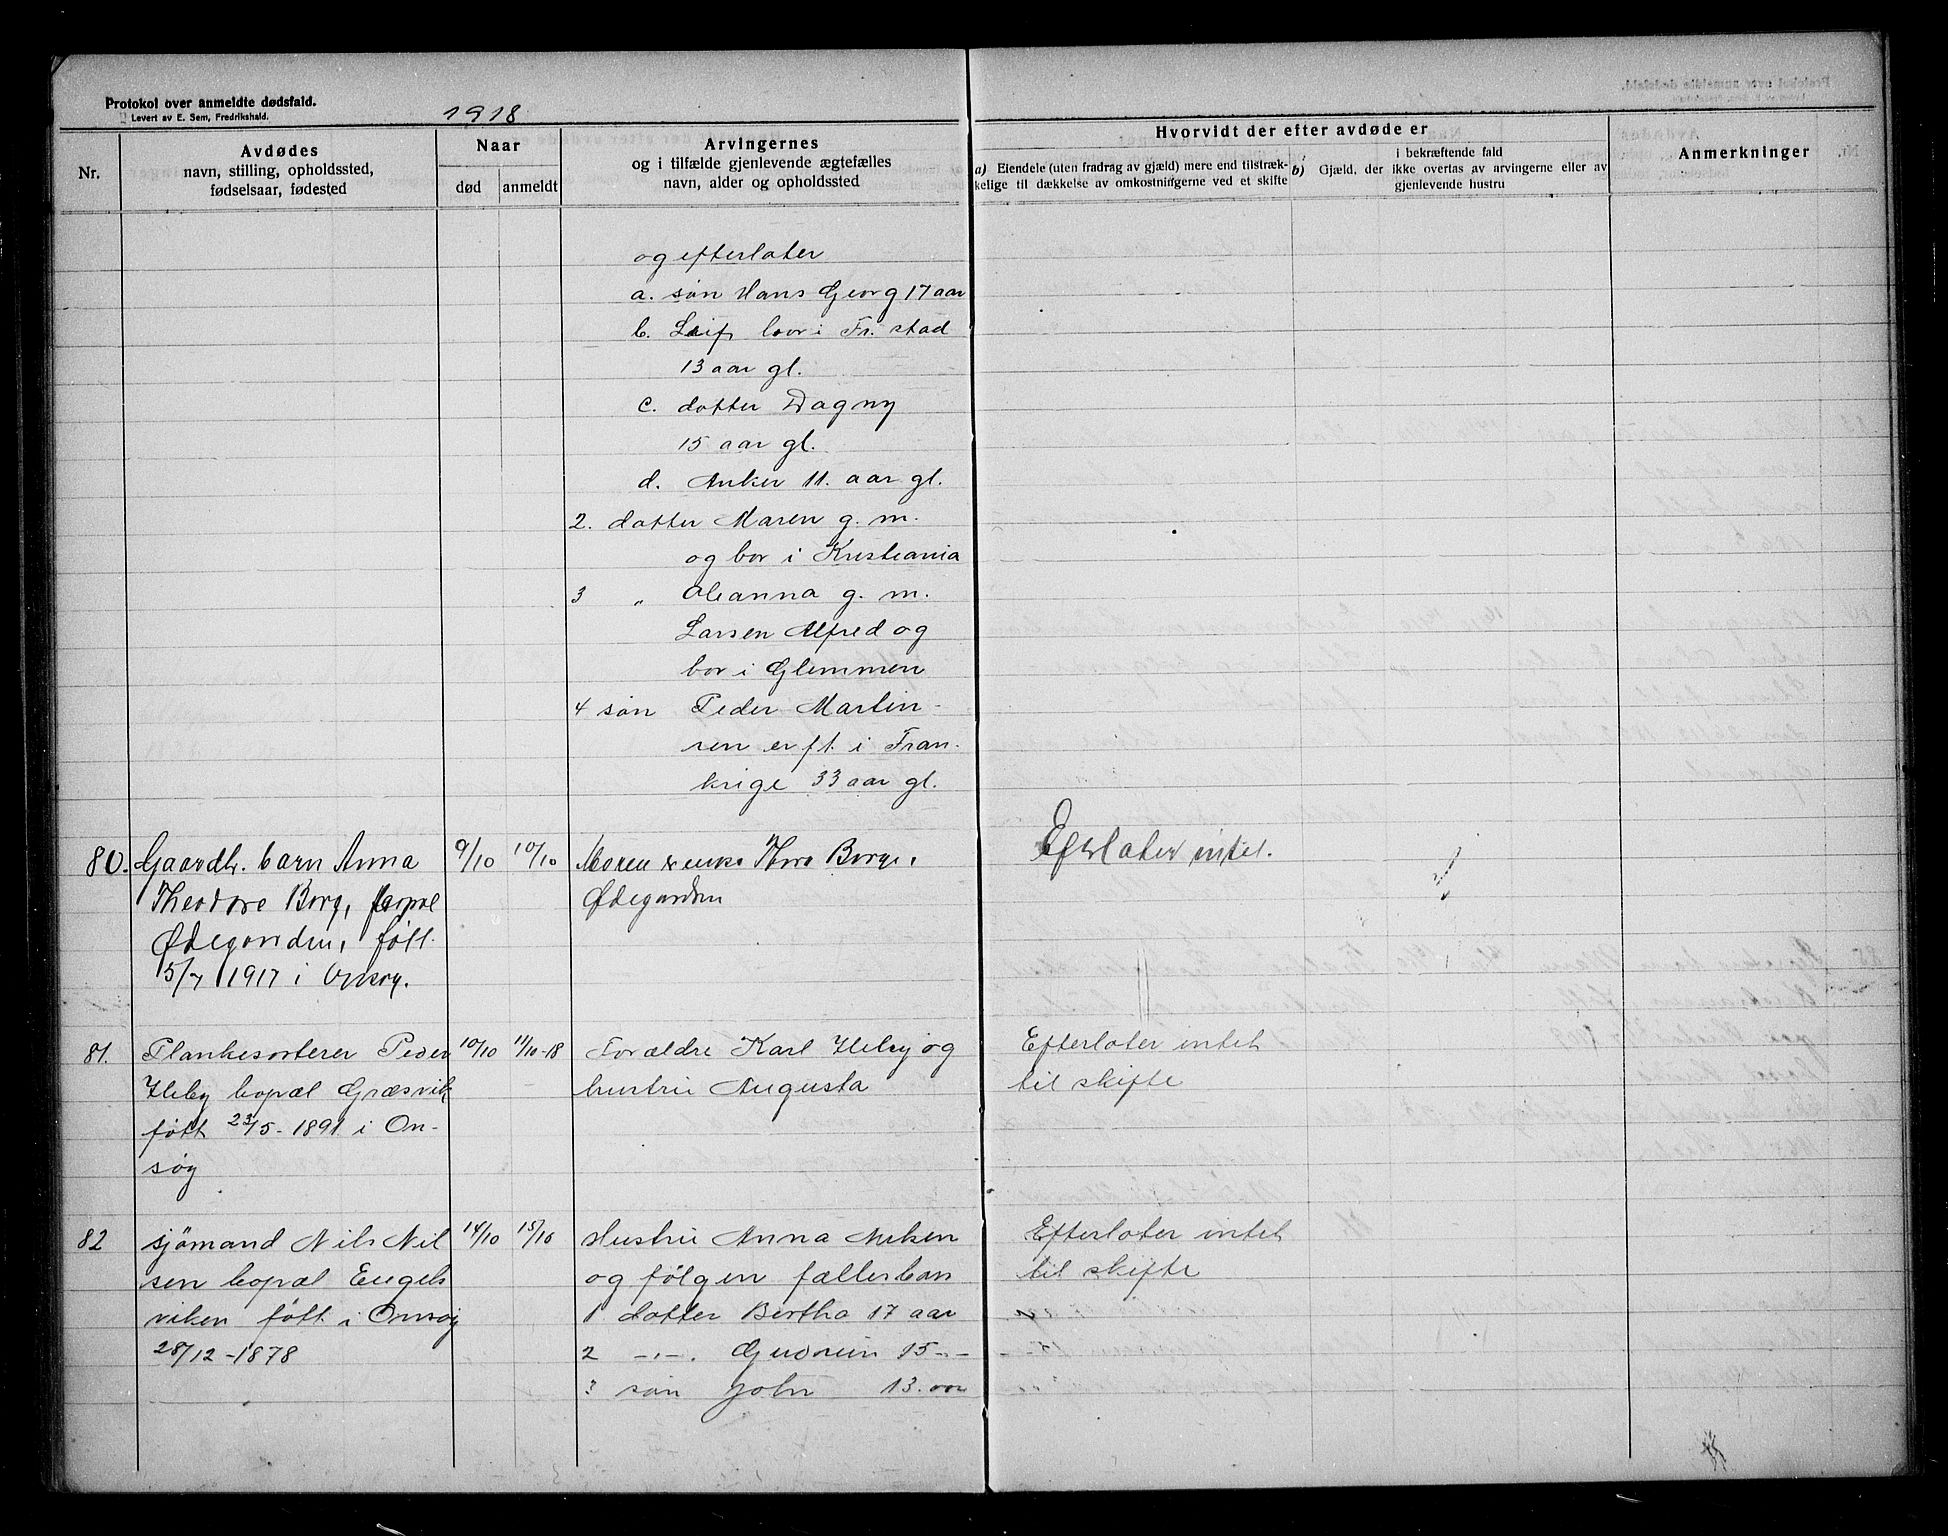 Protokol over anmeldte dødsfald.
Levert av E. Sem, Fredrikshald.
1918
Nr.
Avdødes
navn, stilling, opholdssted,
fødselsaar, fødested
Naar
død
anmeldt
Arvingernes
og i tilfælde gjenlevende ægtefælles
navn, alder og opholdssted
Hvorvidt der efter avdøde er
a) Eiendele (uten fradrag av gjæld) mere end tilstræk-
kelige til dækkelse av omkostningerne ved et skifte
i bekræftende fald
b) Gjæld, der ikke overtas av arvingerne eller av
gjenlevende hustru
Anmerkninger
og efterlater
a. søn Hans Georg 17 aar
b. Leif, bor i Fr. stad
13 aar gl.
c. datter Dagny
15 aar gl.
d. Anker 11. aar gl.
2. datter Maren g. m.
og bor i Kristiania
3 " Oleanna g. m.
Larsen Alfred og
bor i Glemmen
4 søn Peder Martin-
sen er ft. i Fran-
krige 33 aar gl.
80. Gaardbr. barn Anna
Theodore Borg, bopæl
Ødegarden, født
15/7 1917 i Onsøy.
9/10
10/10
Moren enke Thora Borge,
Ødegarden
Efterlater intet.
81. Plankesorterer Peder
Heby bopæl Græsvik
født 23/5-1891 i On-
søy
10/10
11/10-18
Forældre Karl Heby og
hustru Augusta
Efterlater intet
til skifte
82 sjømand Nils Nil
sen bopæl Engels
viken født i Onsøy
28/12-1878
14/10
15/10
Hustru Anna
og følgen fællesbarn
1 datter Bertha 17 aar
2 -"-. Gudrun 15 -"-
3 søn John 13. aar
Efterlater intet
til skifte